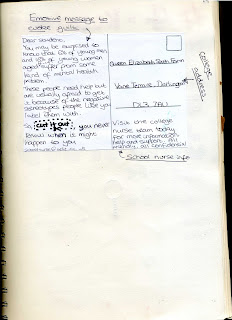 Emotive message to
evoke guilt.
Dear student,
You may be surprised to
know that 6% of young men
and 16% of young women
aged suffer from some
kind of mental health
problem.
These people need help but
are usually afraid to get
it because of the negative
stereotypes people like you
label them with.
So, cut it out, you never
know when it might
happen to you.
Queen Elizabeth Sixth Form
Vane Terrace, Darlington
DL3 7AU
College
address
Visit the college
nurse team today
for more information,
help and support. All
friendly, all confidential
School nurse info